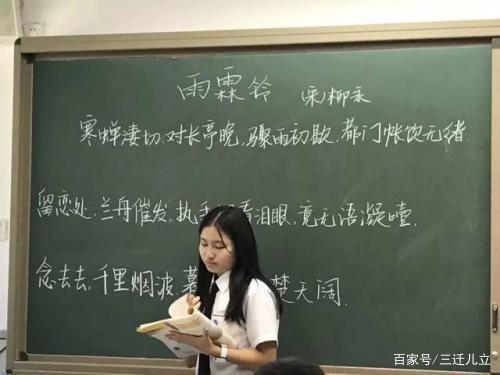 雨霖铃 宋柳永
寒蝉凄切,对长亭晚,骤雨初歇,都门帐饮无绪
留恋处,兰舟催发,执手 看泪眼,竟无语凝噎,
念去去,千里烟波,暮 楚天阔,
百家号/三迁儿立